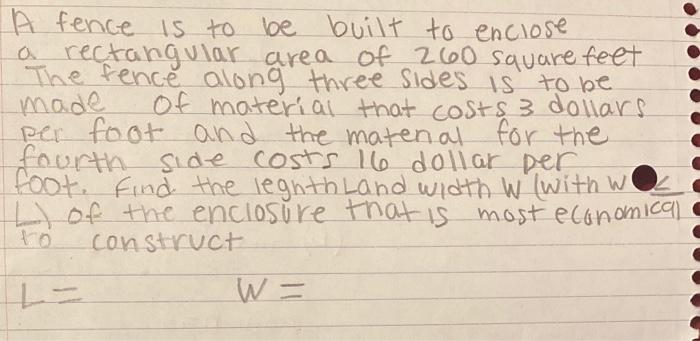 A fence is to be built to enclose
a rectangular area of 260 square feet
The fence along three sides is to be
made of material that costs 3 dollars
per foot and the material for the
fourth side costs 16 dollar per
foot. Find the legnth L and width W (with W ≤
L) of the enclosure that is most economical
to construct
L = W =